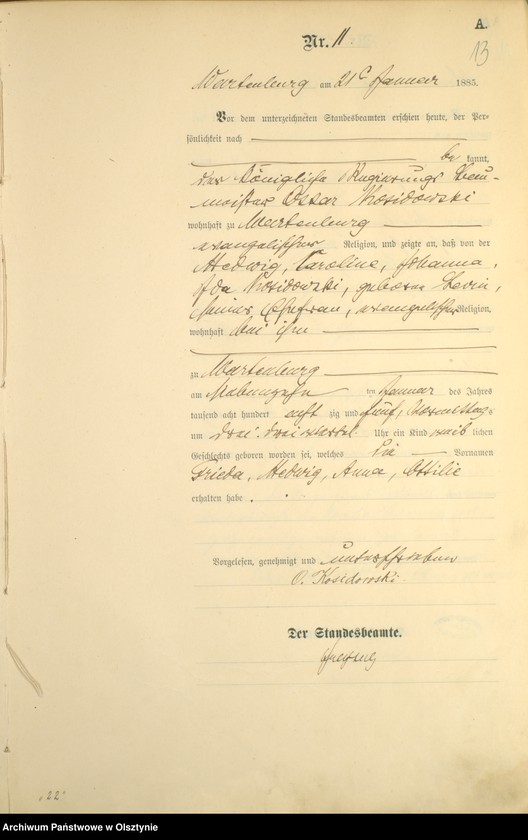 A.
Nr. 11.
13
Wartenburg am 21t Januar 1885.
Vor dem unterzeichneten Standesbeamten erschien heute, der Per-
sönlichkeit nach
be kannt,
der Königliche Regierungs Bau-
meister Oscar Kosidowski
wohnhaft zu Wartenburg
evangelischer Religion, und zeigte an, daß von der
Hedwig, Caroline, Johanna,
Ida Kosidowski, geborene Levin,
seiner Ehefrau, evangelischer Religion,
wohnhaft bei ihm
zu Wartenburg
am siebenzehn ten Januar des Jahres
tausend acht hundert acht zig und fünf, Vormittags
um drei dreiviertel Uhr ein Kind weib lichen
Geschlechts geboren worden sei, welches die Vornamen
Frieda, Hedwig, Anna, Ottilie
erhalten habe.
Vorgelesen, genehmigt und unterschrieben
O. Kosidowski.
Der Standesbeamte.
„22"
Archiwum Państwowe w Olsztynie